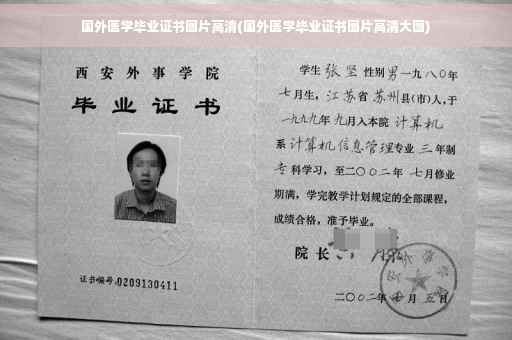 国外医学毕业证书图片高清(国外医学毕业证书图片高清大图)
西安外事学院
毕业证书
证书编号:0209130411
学生 张坚 性别 男 一九八〇年
七月生，江苏省 苏州县(市)人，于
一九九九年 九月入本院 计算机
系 计算机信息管理 专业 三 年制
专科学习，至二〇〇二年 七月修业
期满，学完教学计划规定的全部课程，
成绩合格，准予毕业。
院长
二〇〇二年 月 五日